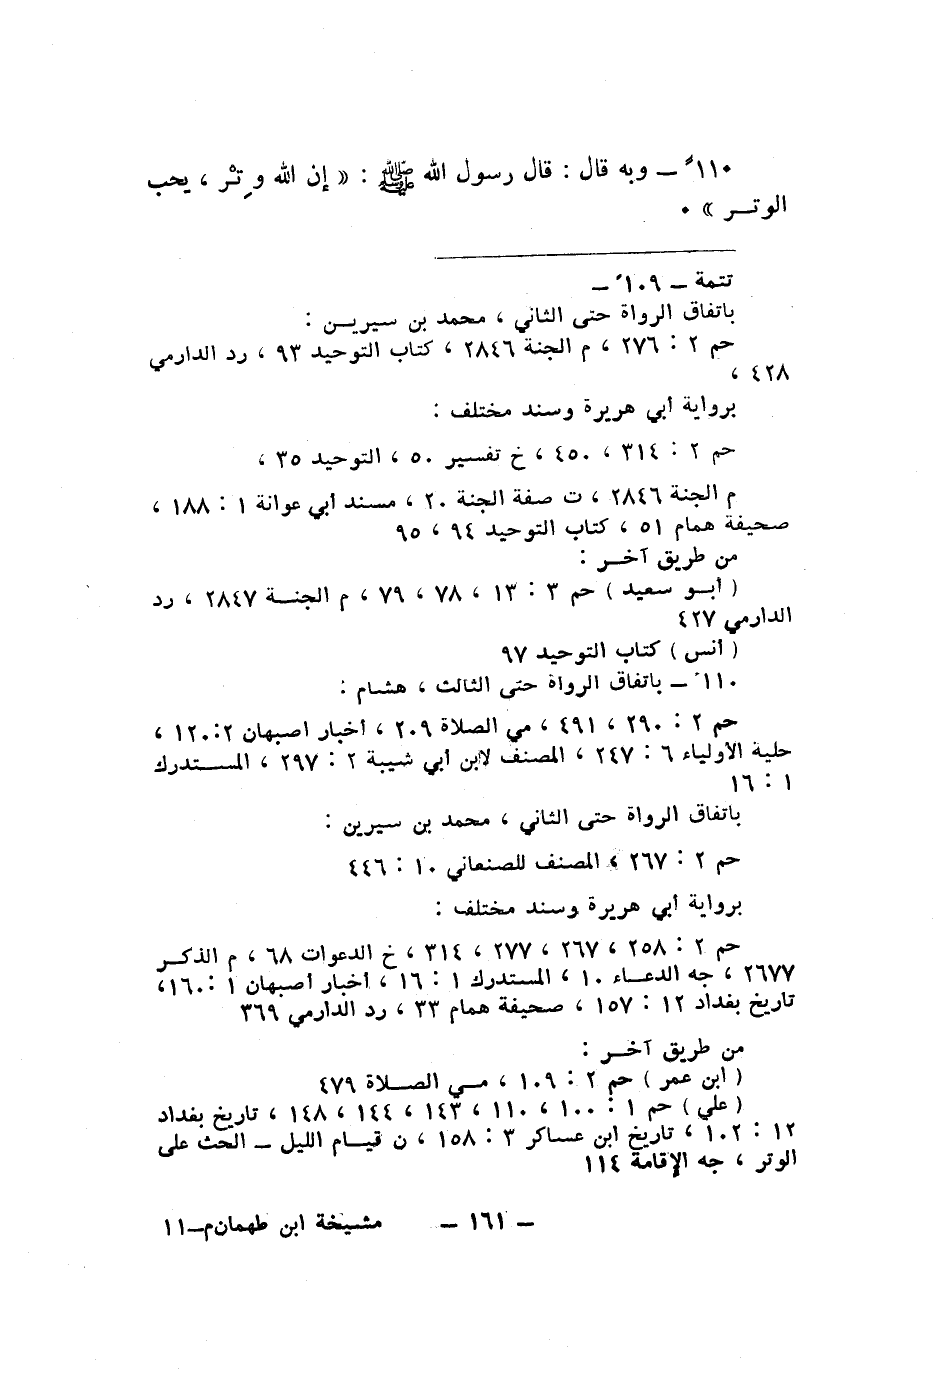 ١١٠ً – وبه قال : قال رسول الله ﷺ : « إن الله وِتْر ، يحب
الوتــر » ٠
تتمة – ١٠٩ً –
باتفاق الرواة حتى الثاني ، محمد بن سيريــن :
حم ٢ : ٢٧٦ ، م الجنة ٢٨٤٦ ، كتاب التوحيد ٩٣ ، رد الدارمي
٤٢٨ ،
برواية أبي هريرة وسند مختلف :
حم ٢ : ٣١٤ ، ٤٥٠ ، خ تفسير ٥٠ ، التوحيد ٣٥ ،
م الجنة ٢٨٤٦ ، ت صفة الجنة ٢٠ ، مسند أبي عوانة ١ : ١٨٨ ،
صحيفة همام ٥١ ، كتاب التوحيد ٩٤ ، ٩٥
من طريق آخــر :
( أبــو سعيد ) حم ٣ : ١٣ ، ٧٨ ، ٧٩ ، م الجنــة ٢٨٤٧ ، رد
الدارمي ٤٢٧
( أنس ) كتاب التوحيد ٩٧
١١٠ً – باتفاق الرواة حتى الثالث ، هشام :
حم ٢ : ٢٩٠ ، ٤٩١ ، مي الصلاة ٢٠٩ ، أخبار اصبهان ١٢٠:٢ ،
حلية الأولياء ٦ : ٢٤٧ ، المصنف لابن أبي شيبة ٢ : ٢٩٧ ، المســتدرك
١ : ١٦
باتفاق الرواة حتى الثاني ، محمد بن سيرين :
حم ٢ : ٢٦٧ ، المصنف للصنعاني ١٠ : ٤٤٦
برواية أبي هريرة وسند مختلف :
حم ٢ : ٢٥٨ ، ٢٦٧ ، ٢٧٧ ، ٣١٤ ، خ الدعوات ٦٨ ، م الذكر
٢٦٧٧ ، جه الدعــاء ١٠ ، المستدرك ١ : ١٦ ، أخبار أصبهان ١ : ١٦٠،
تاريخ بغداد ١٢ : ١٥٧ ، صحيفة همام ٣٣ ، رد الدارمي ٣٦٩
من طريق آخــر :
( ابن عمر ) حم ٢ : ١٠٩ ، مــي الصــلاة ٤٧٩
( علي ) حم ١ : ١٠٠ ، ١١٠ ، ١٤٣ ، ١٤٤ ، ١٤٨ ، تاريخ بغداد
١٢ : ١٠٢ ، تاريخ ابن عساكر ٣ : ١٥٨ ، ن قيــام الليل – الحث على
الوتر ، جه الإقامة ١١٤
– ١٦١ – مشيخة ابن طهمان م–١١